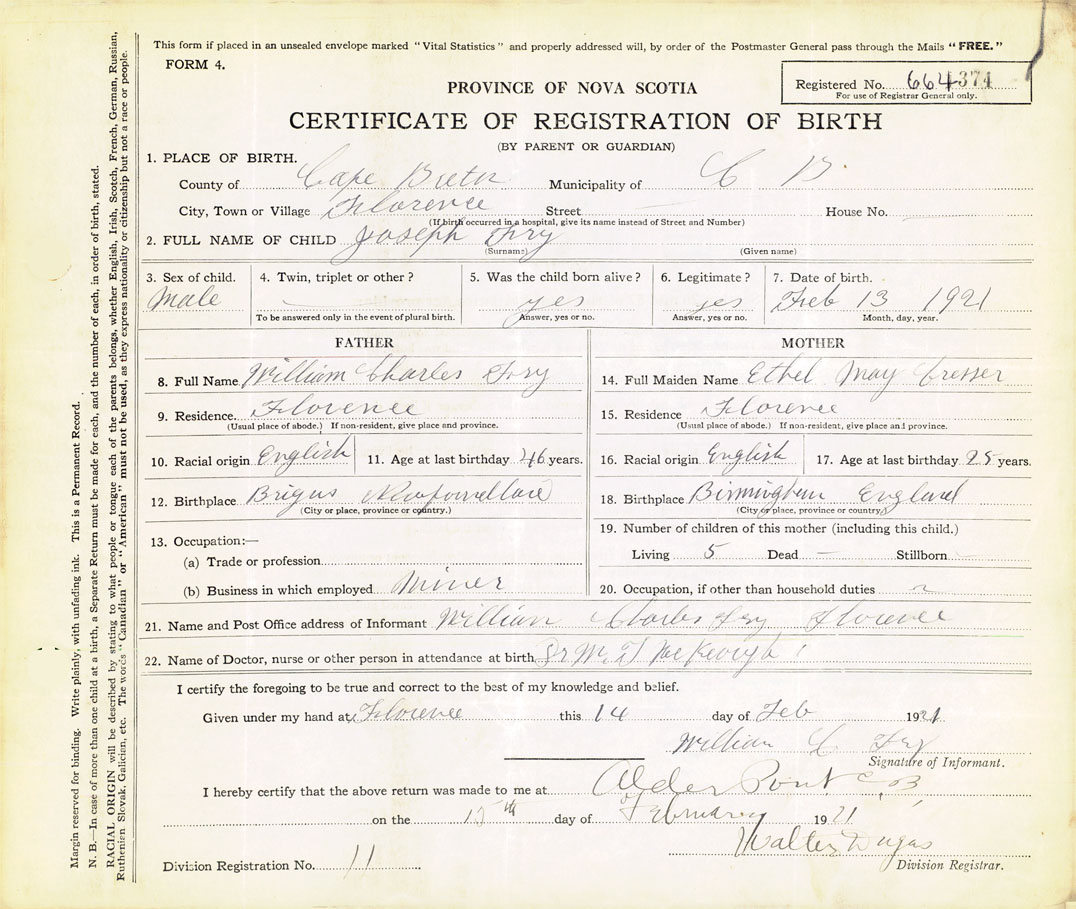 This form if placed in an unsealed envelope marked "Vital Statistics" and properly addressed will, by order of the Postmaster General pass through the Mails "FREE."
FORM 4.
Registered No. 664374
For use of Registrar General only.
PROVINCE OF NOVA SCOTIA
CERTIFICATE OF REGISTRATION OF BIRTH
(BY PARENT OR GUARDIAN)
1. PLACE OF BIRTH.
County of Cape Breton Municipality of C B
City, Town or Village Florence Street House No.
(If birth occurred in a hospital, give its name instead of Street and Number)
2. FULL NAME OF CHILD Joseph Fry
(Surname) (Given name)
3. Sex of child. 4. Twin, triplet or other? 5. Was the child born alive? 6. Legitimate? 7. Date of birth.
Male yes yes Feb 13 1921
To be answered only in the event of plural birth. Answer, yes or no. Answer, yes or no. Month, day, year.
FATHER
8. Full Name William Charles Fry
9. Residence. Florence
(Usual place of abode.) If non-resident, give place and province.
10. Racial origin English 11. Age at last birthday 46 years.
12. Birthplace Brigus Newfoundland
(City or place, province or country.)
13. Occupation:—
(a) Trade or profession
(b) Business in which employed Miner
MOTHER
14. Full Maiden Name Ethel May
15. Residence Florence
(Usual place of abode.) If non-resident, give place and province.
16. Racial origin English 17. Age at last birthday years.
18. Birthplace Birmingham England
(City or place, province or country.)
19. Number of children of this mother (including this child.)
Living 5 Dead — Stillborn
20. Occupation, if other than household duties
21. Name and Post Office address of Informant William Charles Fry Florence
22. Name of Doctor, nurse or other person in attendance at birth Dr M. T McKeough
I certify the foregoing to be true and correct to the best of my knowledge and belief.
Given under my hand at Florence this 14 day of Feb 1921
William C Fry
Signature of Informant.
I hereby certify that the above return was made to me at Alder Point C.B.
on the 15th day of February 1921
Walter Dugas
Division Registrar.
Division Registration No. 11
Margin reserved for binding. Write plainly, with unfading ink. This is a Permanent Record.
N. B.—In case of more than one child at a birth, a Separate Return must be made for each, and the number of each, in order of birth, stated.
RACIAL ORIGIN will be described by stating to what people or tongue each of the parents belongs, whether English, Irish, Scotch, French, German, Russian,
Ruthenian, Slovak, Galician, etc. The words "Canadian" or "American" must not be used, as they express nationality or citizenship but not a race or people.